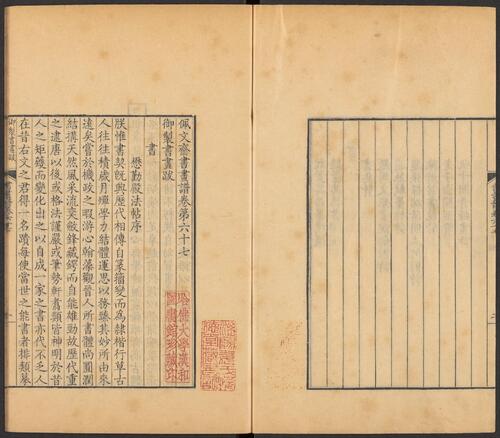 佩文齋書畫譜卷第六十七
御製書畫跋
書
懋勤殿法帖序
朕惟書契既興歷代相傳自篆籀變而為隸楷行草古
人往往積歲月殫學力結體運思以務臻其妙所由來
遠矣嘗於機政之暇游心翰藻觀晉人所書體尚圓潤
結搆天然風采流奕斂鋒藏鍔而自能雄勁故歷代重
之逮唐以後或格法謹嚴或筆勢軒翥類皆神明於昔
人之矩矱而變化出之以自成一家之書亦代不乏人
在昔右文之君得一名蹟每使當世之能書者排類摹
哈佛大學漢和
圖書館珍藏印